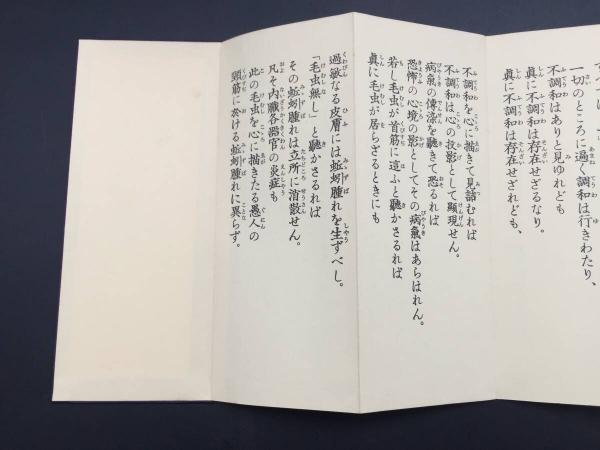 一切のところに遍く調和は行きわたり、
不調和はありと見ゆれども
眞に不調和は存在せざるなり。
眞に不調和は存在せざれども、
不調和を心に描きて見詰むれば
不調和は心の投影として顯現せん。
病氣の傳染を聽きて恐るれば
恐怖の心境の影としてその病氣はあらはれん。
若し毛虫が首筋に這ふと聽かさるれば
眞に毛虫が居らざるときにも
過敏なる皮膚には蚯蚓腫れを生ずべし。
「毛虫無し」と聽かさるれば
その蚯蚓腫れは立所に消散せん。
凡そ内臟各器官の炎症も
此の毛虫を心に描きたる愚人の
頸筋に於ける蚯蚓腫れに異らず。